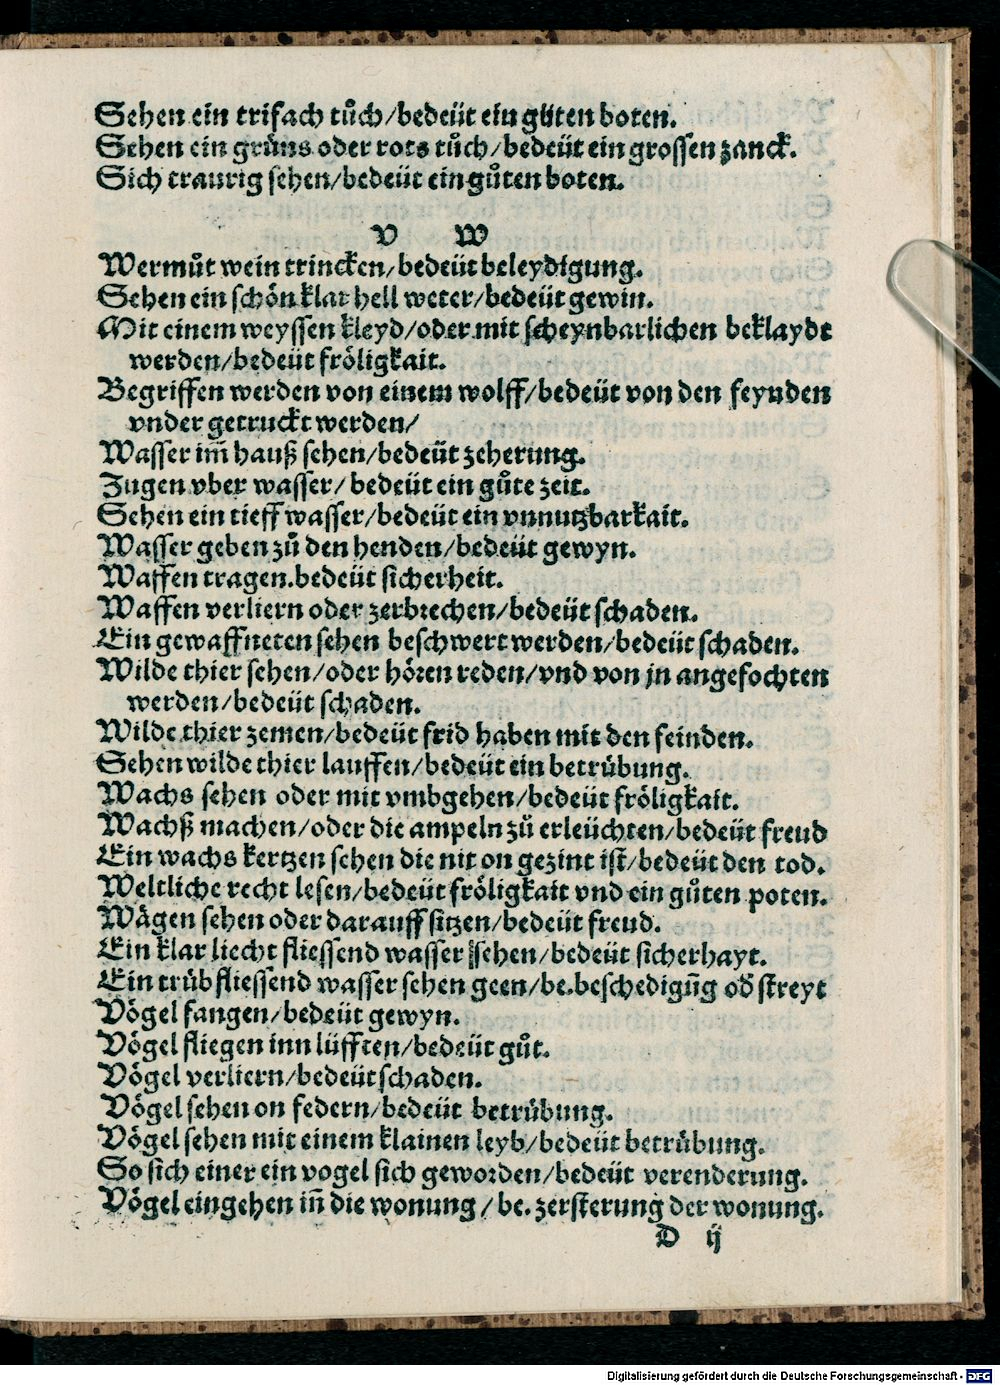 Sehen ein trifach tůch/bedeüt ein gůten boten.
Sehen ein grůns oder rots tůch/bedeüt ein grossen zanck.
Sich traurig sehen/bedeüt ein gůten boten.
V W
Wermůt wein trincken/bedeüt beleydigung.
Sehen ein schön klar hell weter/bedeüt gewin.
Mit einem weyssen kleyd/oder mit scheynbarlichen beklaydt
werden/bedeüt fröligkait.
Begriffen werden von einem wolff/bedeüt von den feynden
vnder getruckt werden/
Wasser im̃ hauß sehen/bedeüt zeherung.
Zugen vber wasser/ bedeüt ein gůte zeit.
Sehen ein tieff wasser/bedeüt ein vnnutzbarkait.
Wasser geben zů den henden/bedeüt gewyn.
Waffen tragen.bedeüt sicherheit.
Waffen verliern oder zerbrechen/bedeüt schaden.
Ein gewaffneten sehen beschwert werden/bedeüt schaden.
Wilde thier sehen/oder hören reden/vnd von jn angefochten
werden/bedeüt schaden.
Wilde thier zemen/bedeüt frid haben mit den feinden.
Sehen wilde thier lauffen/bedeüt ein betrůbung.
Wachs sehen oder mit vmbgehen/bedeüt fröligkait.
Wachß machen/oder die ampeln zů erleüchten/bedeüt freud
Ein wachs kertzen sehen die nit on gezint ist/bedeüt den tod.
Weltliche recht lesen/bedeüt fröligkait vnd ein gůten poten.
Wägen sehen oder darauff sitzen/bedeüt freud.
Ein klar liecht fliessend wasser sehen/bedeüt sicherhayt.
Ein trůb fliessend wasser sehen geen/be.beschedigũg od̛ streyt
Vögel fangen/bedeüt gewyn.
Vögel fliegen inn lüfften/bedeüt gůt.
Vögel verliern/bedeüt schaden.
Vögel sehen on federn/bedeüt betrůbung.
Vögel sehen mit einem klainen leyb/bedeüt betrůbung.
So sich einer ein vogel sich geworden/bedeüt verenderung.
Vögel eingehen iñ die wonung/be. zersterung der wonung.
D ij
Digitalisierung gefördert durch die Deutsche Forschungsgemeinschaft - DFG